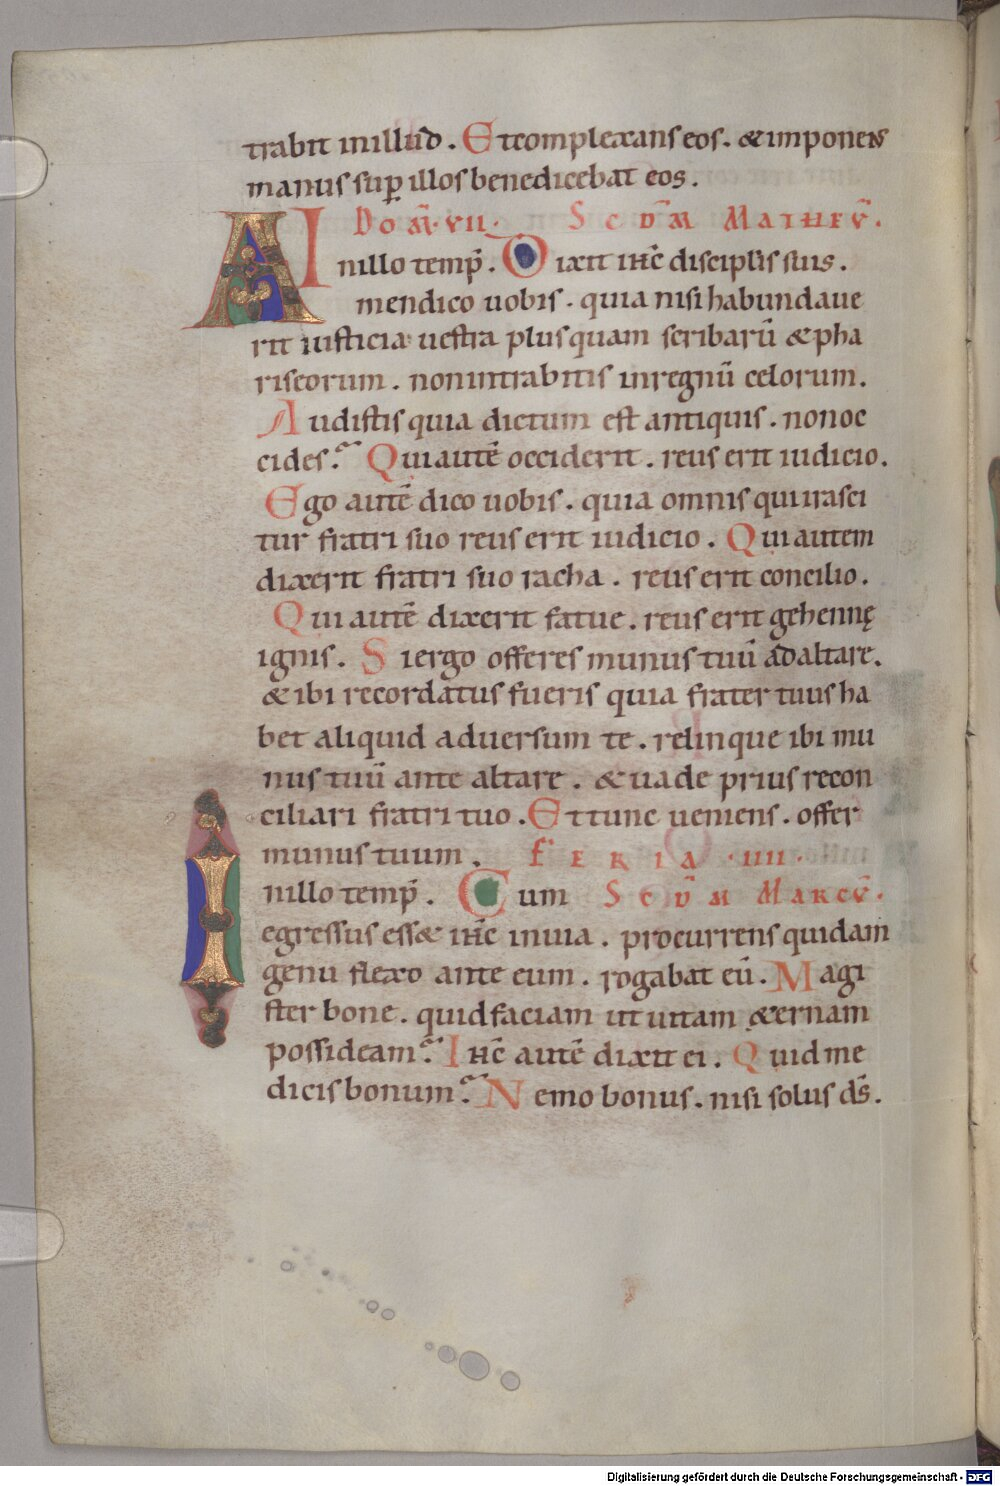 trabit in illud. Et complexans eos. & imponens
manus sup̱ illos benedicebat eos.
Dom̄. VII. Scd̄m Matheū.
In illo temp̄. Dixit ih̄c discipulis suis.
Amen dico uobis. quia nisi habundaue
rit iusticia uestra plus quam scribarū & pha
riseorum. non intrabitis in regnū celorum.
Audistis quia dictum est antiquis. non oc
cides. Qui autē occiderit. reus erit iudicio.
Ego autē dico uobis. quia omnis qui irasci
tur fratri suo reus erit iudicio. Qui autem
dixerit fratri suo racha. reus erit concilio.
Qui autē dixerit fatue. reus erit gehennę
ignis. Si ergo offeres munus tuū ad altare.
& ibi recordatus fueris quia frater tuus ha
bet aliquid aduersum te. relinque ibi mu
nus tuū ante altare. & uade prius recon
ciliari fratri tuo. Et tunc ueniens. offer
munus tuum. Feria .IIII.
In illo temp̄. Cum Scd̄m Marcū.
egressus ess& ih̄c in uia. procurrens quidam
genu flexo ante eum. rogabat eū. Magi
ster bone. quid faciam ut uitam &ernam
possideam? Ih̄c autē dixit ei. Quid me
dicis bonum? Nemo bonus. nisi solus d̄s.
Digitalisierung gefördert durch die Deutsche Forschungsgemeinschaft - DFG